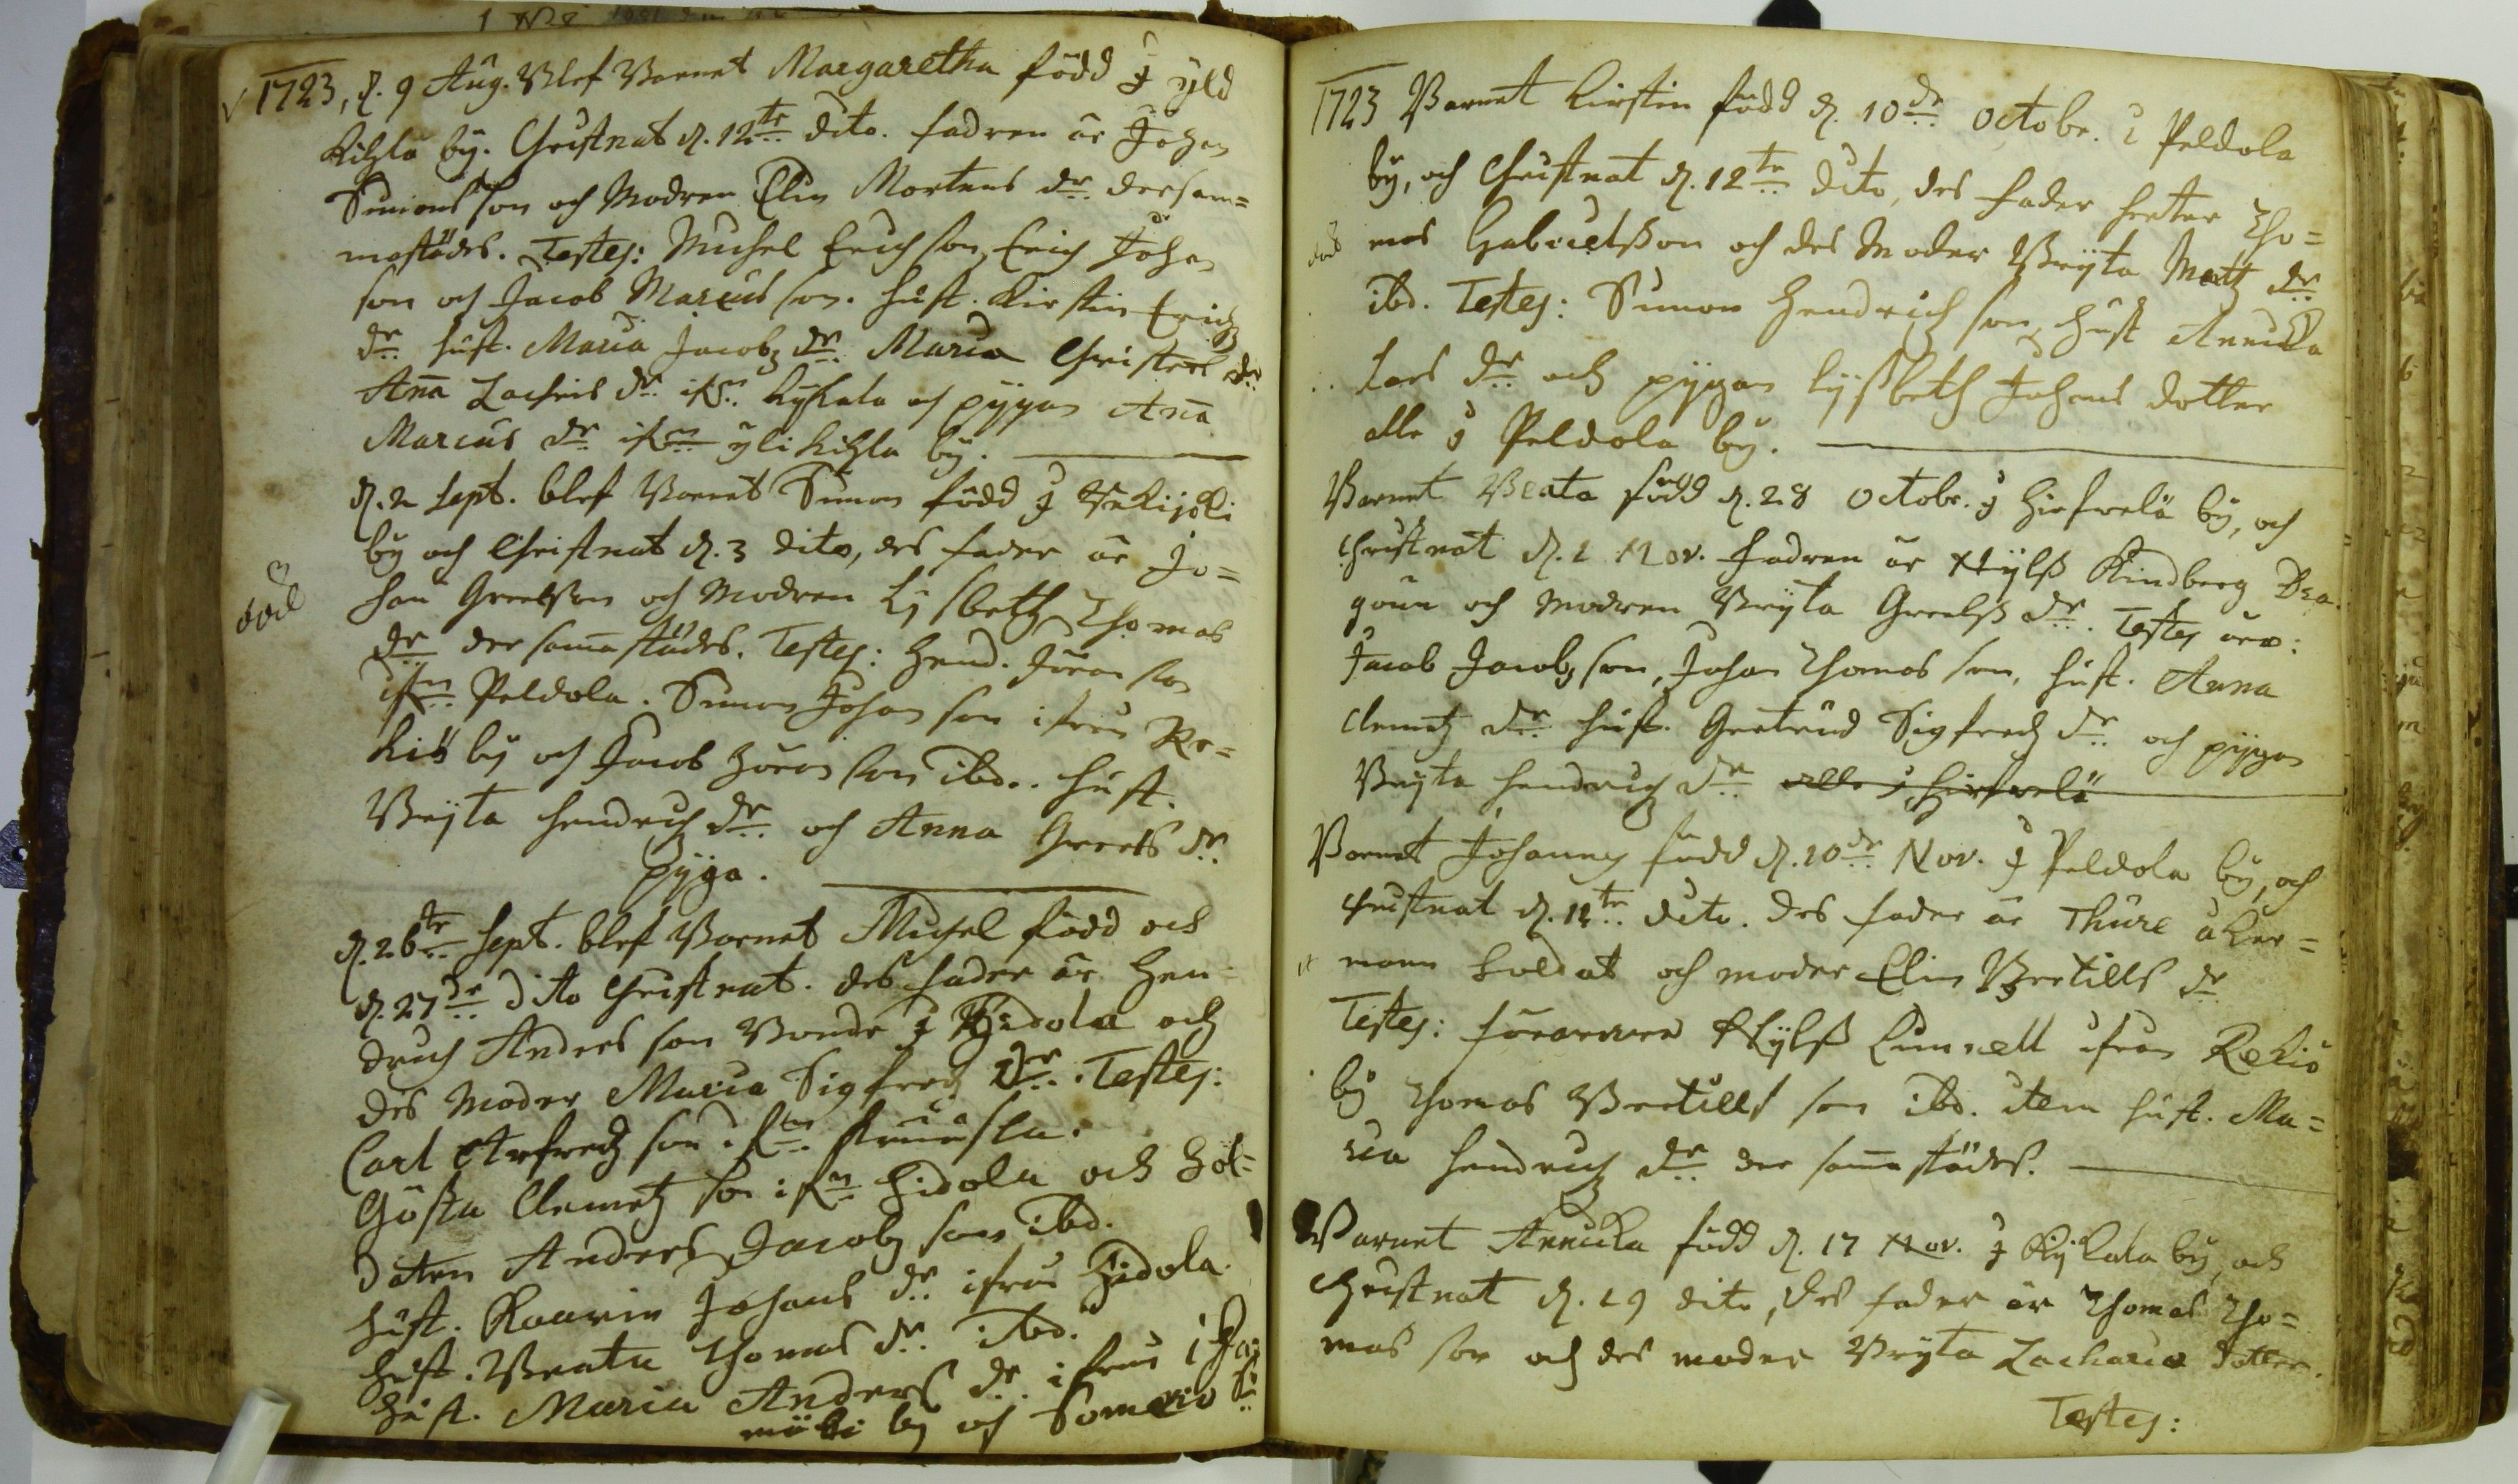 1723, d. 9 Aug. Blef Barnet Margaretha född J yld
Kihla by. Christnat d. 12te dito. fadren är Johan
Simons son och Modren Elin Mortens dr dersam=
mastädes. Testes: Michel Erich son, Erich Johan
son och Jacob Marcus son. hust. Kirstin Erichz
dr hust. Maria Jacobz dr Maria Christers dr
Anna Zachris dr ifrn Kykala och pygan Anna
Marcus dr ifrn yli Kihla by.
d. 2 Sept. blef Barnet Simon född J
by och Christnat d. 3 dito, des fader är Jo=
han Greelsson och Modren Lysbeth Thomas
död
dr der samma städes. Testes: Hend. Jöran son
ifrn Peldola. Simon Johan son ifrån Re=
kiö by och Jacob Jöran son ibd. hust.
Bryta Hendrichz dr och Anna Greels dr
pyga.
d. 26te Sept. blef Barnet Michel född och
d. 27de dito Christnat. des fader är Hen=
drich Anders son Bonde J Hidola och
des Moder Maria Sigfredz dr. Testes:
Carl Arfredz son ifrn
Gösta Clemetz son ifrn Hidola och Sol=
daten Anders Jacobz son ibd.
hust. Kaarin Johans dr ifrån Hidola.
hust. Beata Thomas dr ibd.
hust. Maria Anders dr ifrån
mäki by och Somerio
1723 Barnet Kirstin född d. 10de Octobr. i Peldola
by, och Christnat d. 12te dito, des fader heeter Tho=
död mas Gabrielsson och des Moder Bryta Matz dr
ibd. Testes: Simon Hendrich son, hust Annicka
Lars dr och pygan Lyssbeth Johans dotter
alle i Peldola by.
Barnet Beata född d. 28 Octobr. J Hirfvelä by, och
Christnat d. 1 Nov. fadren är Nylss Kindberg Dra=
goun och Modren Bryta Greelss dr. Testes äro:
Jacob Jacobz son, Johan Thomas son, hust. Anna
Clemetz dr hust. Gertrud Sigfredz dr och pygan
Bryta Hendrichz dr alle i Hirfvelä
Barnet Johannes född d. 10de Nov. J Peldola by, och
Christnat d. 12te dito. des fader är Thure åker=
mann Soldat och moder Elin Bertills dr
Testes: förarenn Nylss Lunnell ifrån Rekiö
by Thomas Bertills son ibd. item hust. Ma=
ria Hendrichz dr der samma städes.
Barnet Annicka född d. 17 Nov. J Kykala by, och
Christnat d. 19 dito, des fader är Thomas Tho=
mas son och des moder Bryta Zacharia dotter.
Testes: